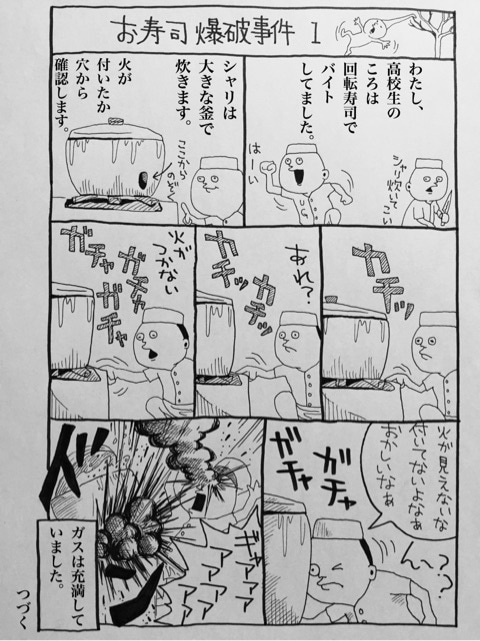 お寿司爆破事件 1
わたし、
高校生の
ころは
回転寿司で
バイト
してました。
シャリ炊いて
こい
はーい
シャリは
大きな釜で
炊きます。
ここから
のぞく
火が
付いたか
穴から
確認します。
カチッ
あれ?
カチッ
カチッ
火が
つかない
ガチャ
ガチャ
ガチャ
火が見えないな
付いてないよなぁ
おかしいなぁ
ん〜??
ガチャ
ガチャ
ドーン
ギャアアアアアア
ガスは充満して
いました。
つづく